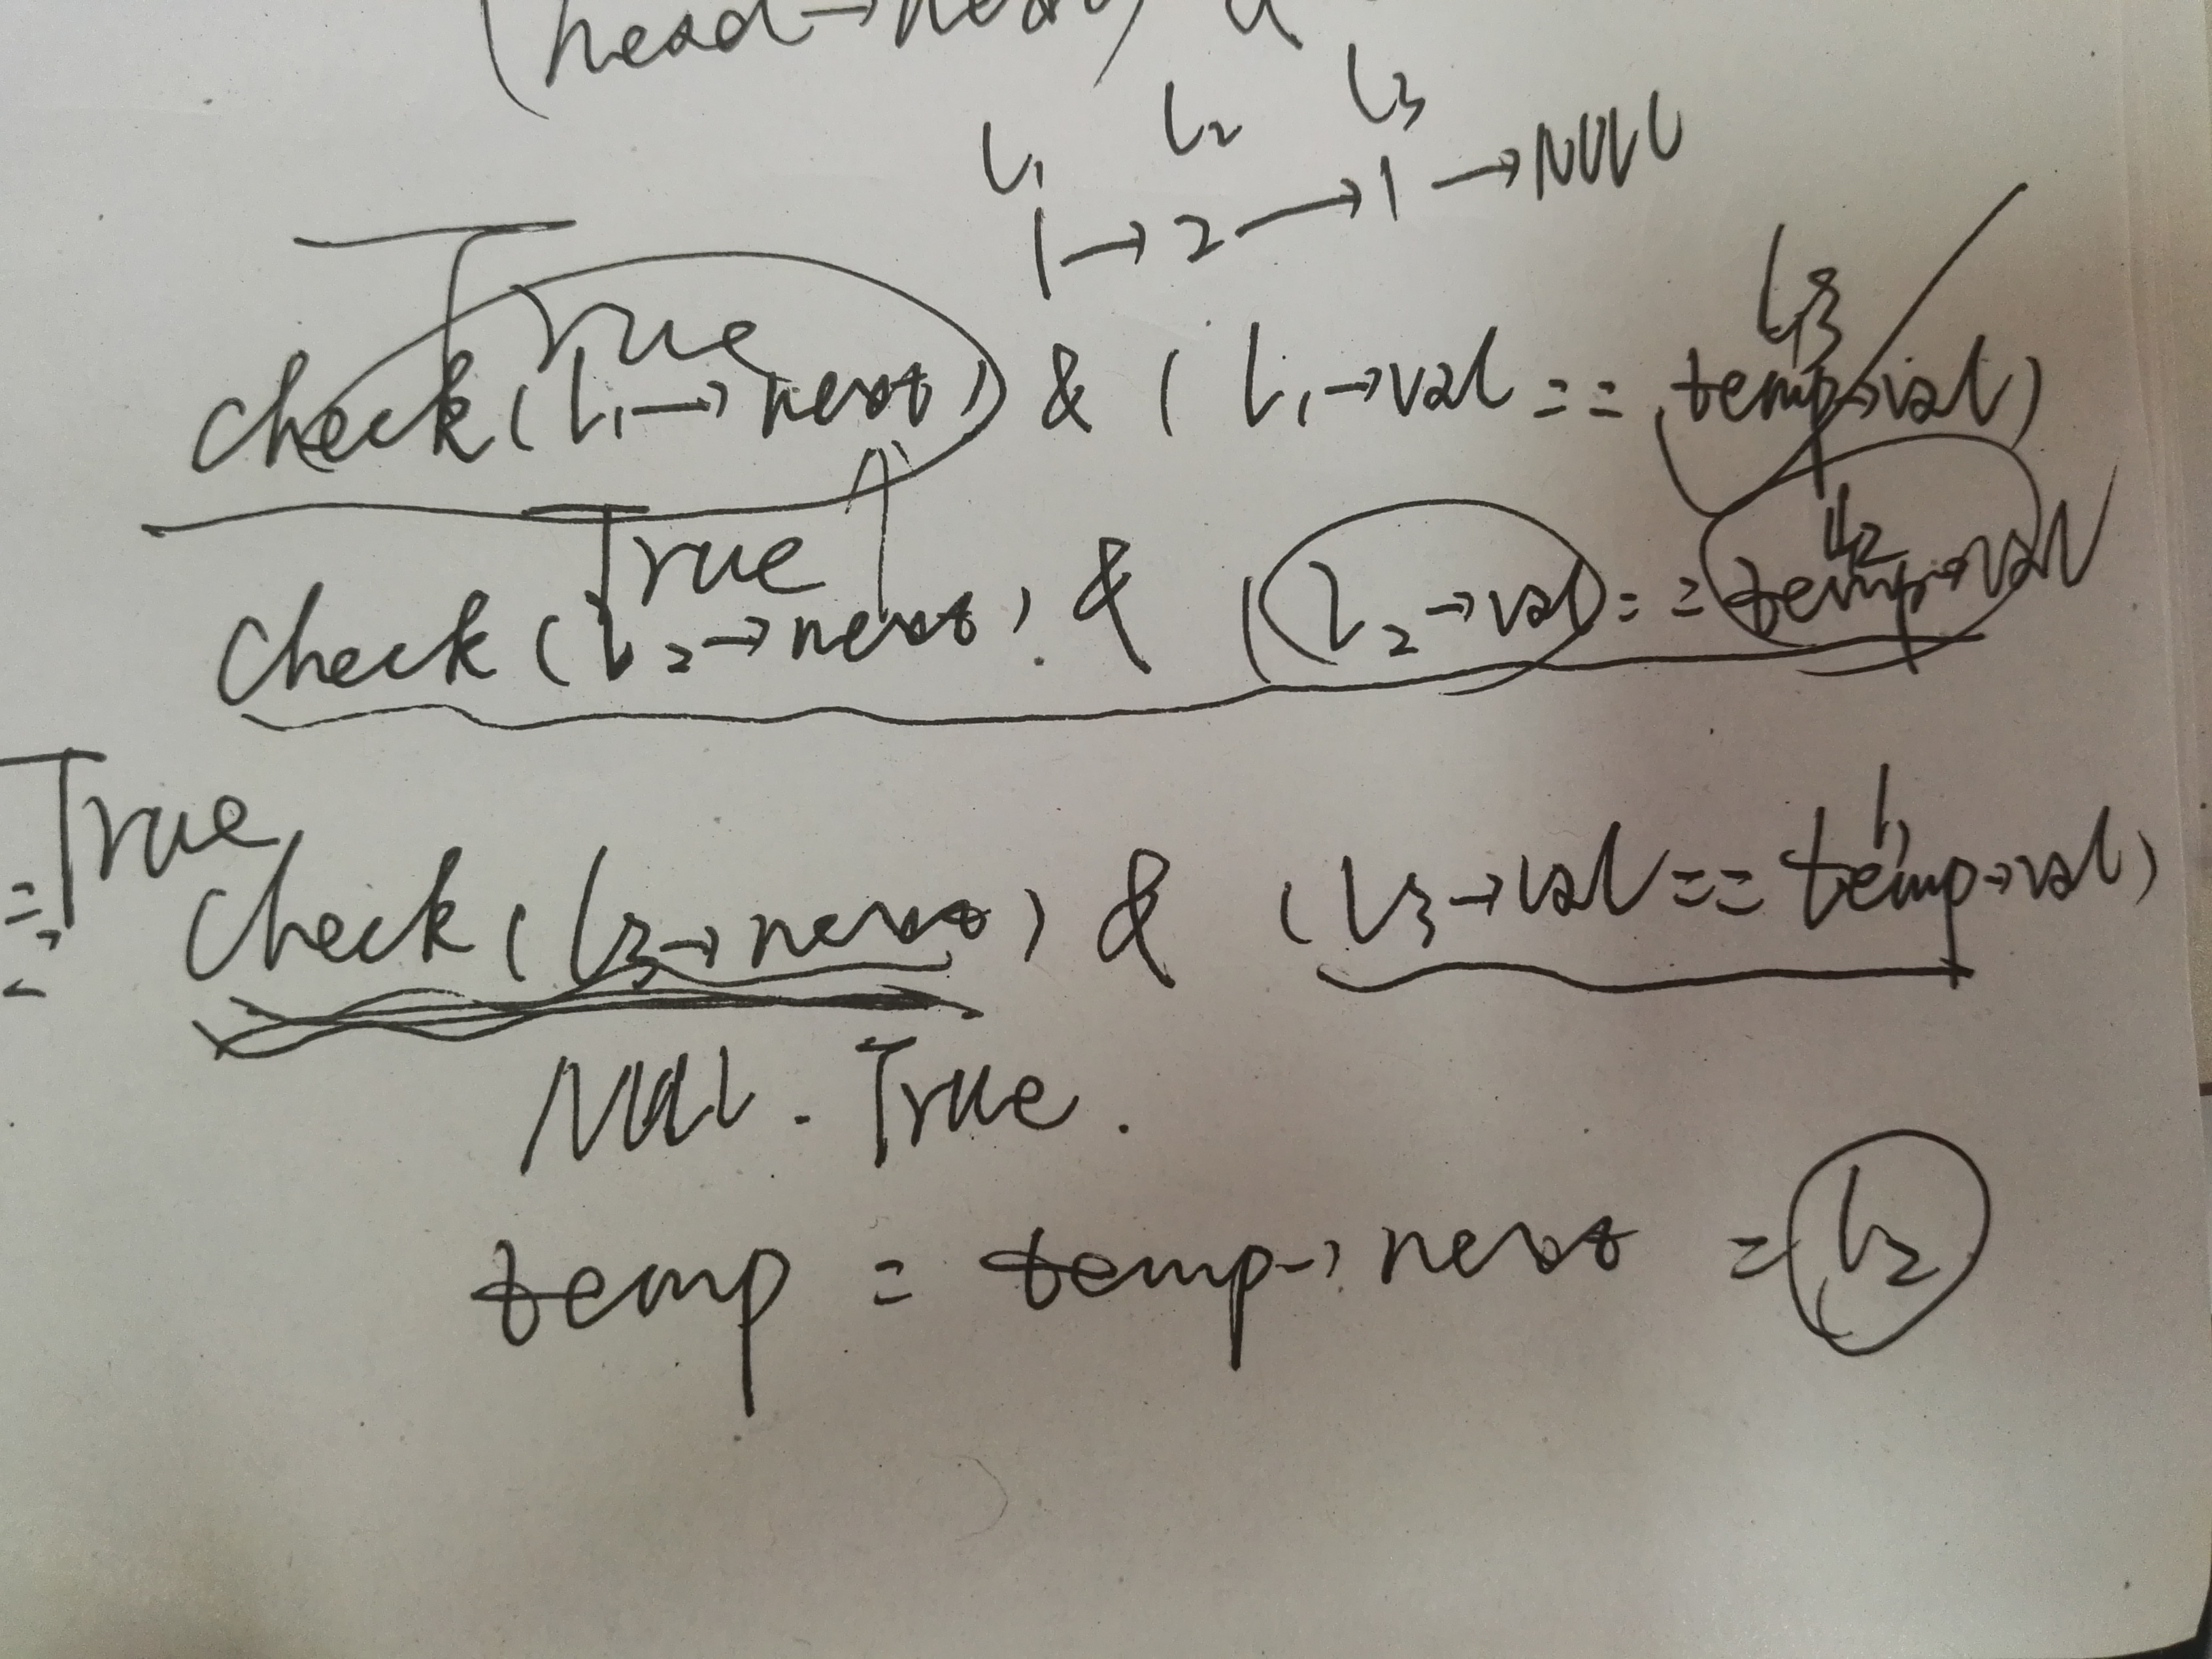 (head→next) &
L1 L2 L3
1→2→1→NULL
True
L3
check(L1→next) & (L1→val == temp→val)
True
L2
check(L2→next) & (L2→val == temp→val
True
L1
check(L3→next) & (L3→val == temp→val)
NULL. True.
temp = temp→next = L2